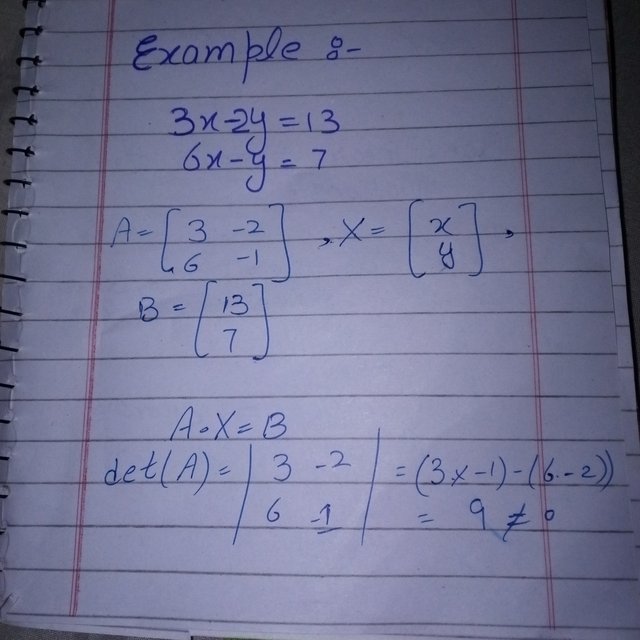 Example :-
3x-2y=13
6x-y=7
A=[3 -2
6 -1], X=[x
y],
B=[13
7]
A.X=B
det(A)=|3 -2
6 -1|=(3x-1)-(6.-2))
= 9≠0